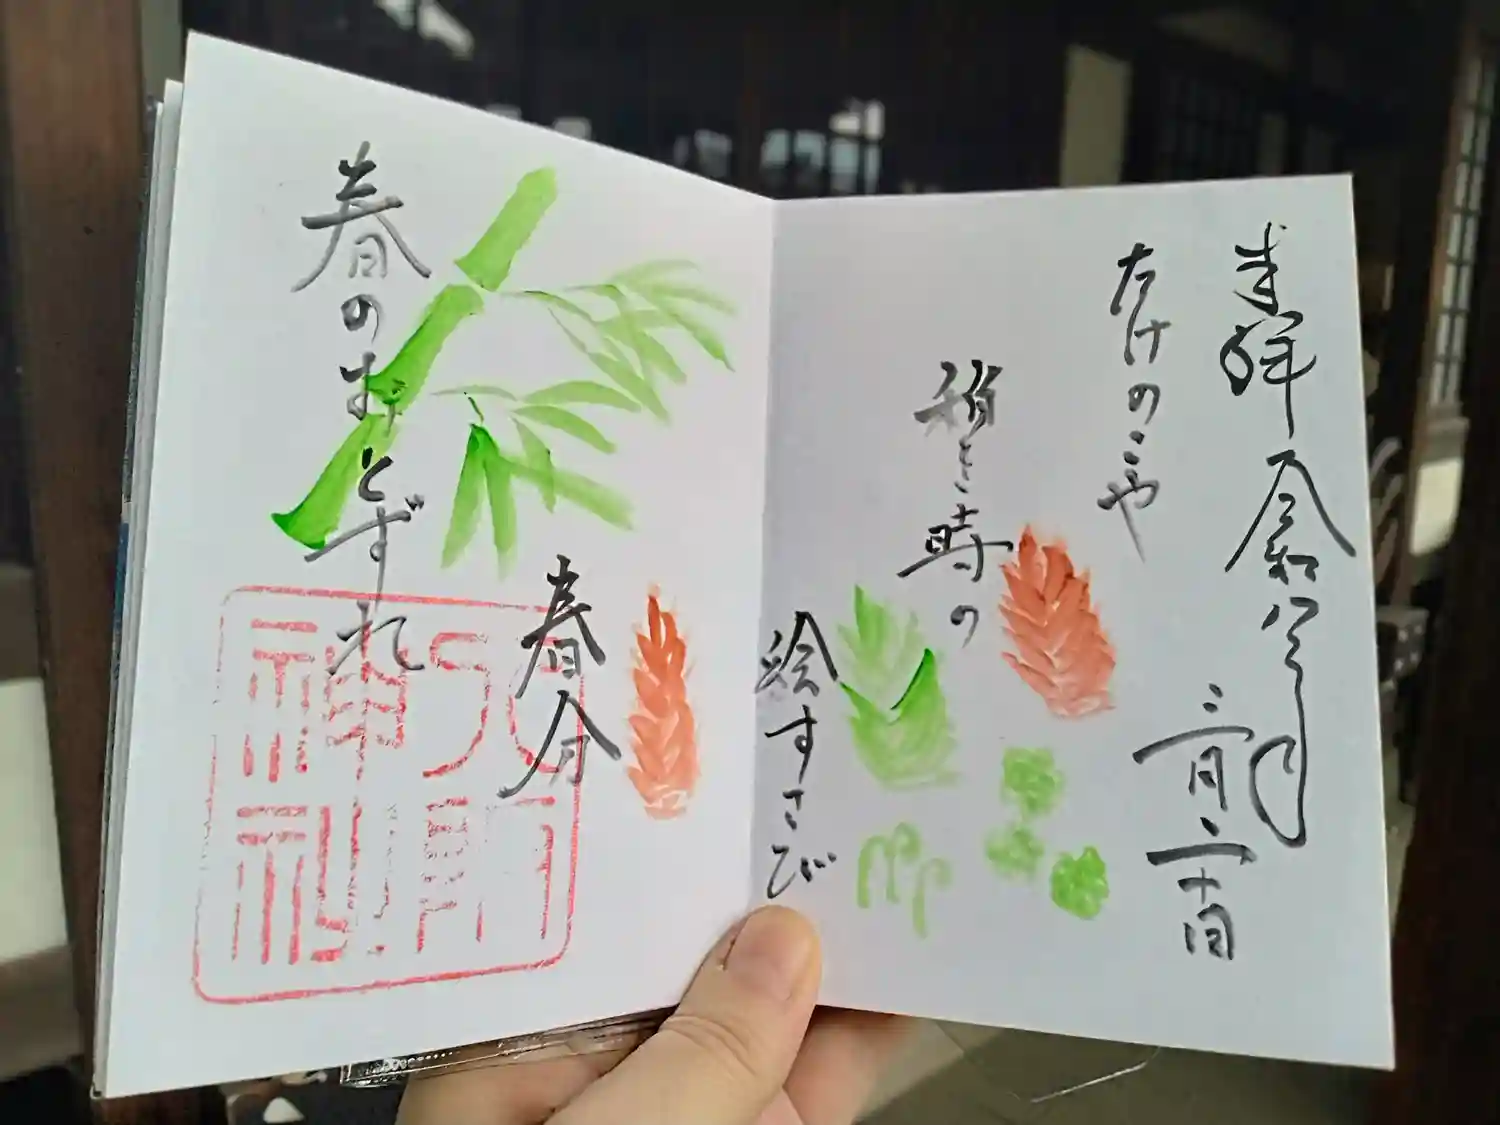 奉拝 令和八年
三月二十日
たけのこや
稚き時の
絵すさび
春分
春のおとずれ